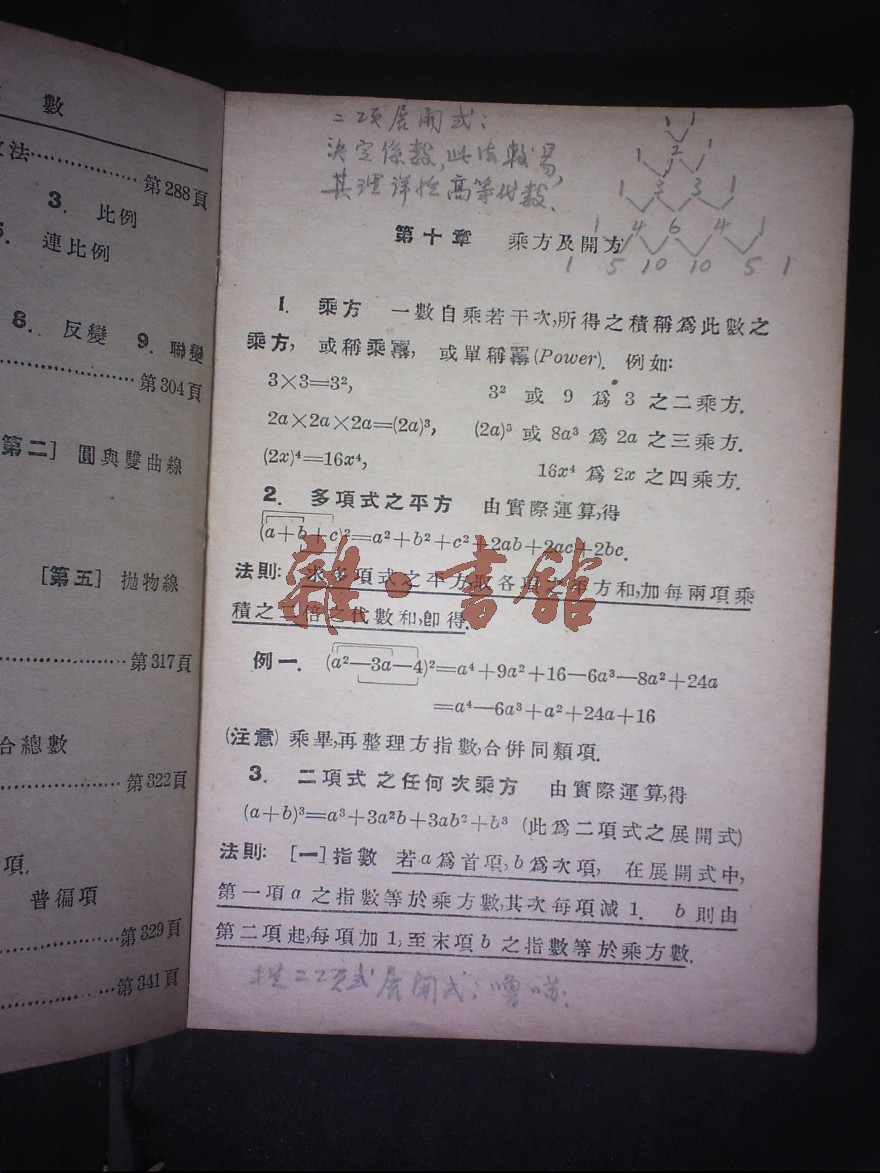 數
法……………第288頁
3. 比例
連比例
8. 反變 9. 聯變
……………第304頁
第二] 圓與雙曲線
[第五] 拋物線
……………第317頁
合總數
……………第322頁
項.
普徧項
……………第329頁
……………第341頁
二項展開式:
決定係數,此法較易,
其理詳於高等代數.
1 1
1 2 1
1 3 3 1
1 4 6 4 1
1 5 10 10 5 1
第十章 乘方及開方
1. 乘方 一數自乘若干次,所得之積稱爲此數之
乘方, 或稱乘羃, 或單稱羃(Power). 例如:
3×3=3², 3² 或 9 爲 3 之二乘方.
2a×2a×2a=(2a)³, (2a)³ 或 8a³ 爲 2a 之三乘方.
(2x)⁴=16x⁴, 16x⁴ 爲 2x 之四乘方.
2. 多項式之平方 由實際運算,得
(a+b+c)²=a²+b²+c²+2ab+2ac+2bc.
法則: 求多項式之平方,取各項之平方和,加每兩項乘
積之二倍之代數和,卽得.
雜·書館
例一. (a²—3a—4)²=a⁴+9a²+16—6a³—8a²+24a
=a⁴—6a³+a²+24a+16
(注意) 乘畢,再整理方指數,合併同類項.
3. 二項式之任何次乘方 由實際運算,得
(a+b)³=a³+3a²b+3ab²+b³ (此爲二項式之展開式)
法則: [一]指數 若a爲首項,b爲次項, 在展開式中,
第一項a之指數等於乘方數,其次每項減1. b則由
第二項起,每項加1,至末項b之指數等於乘方數.
二項式展開式: